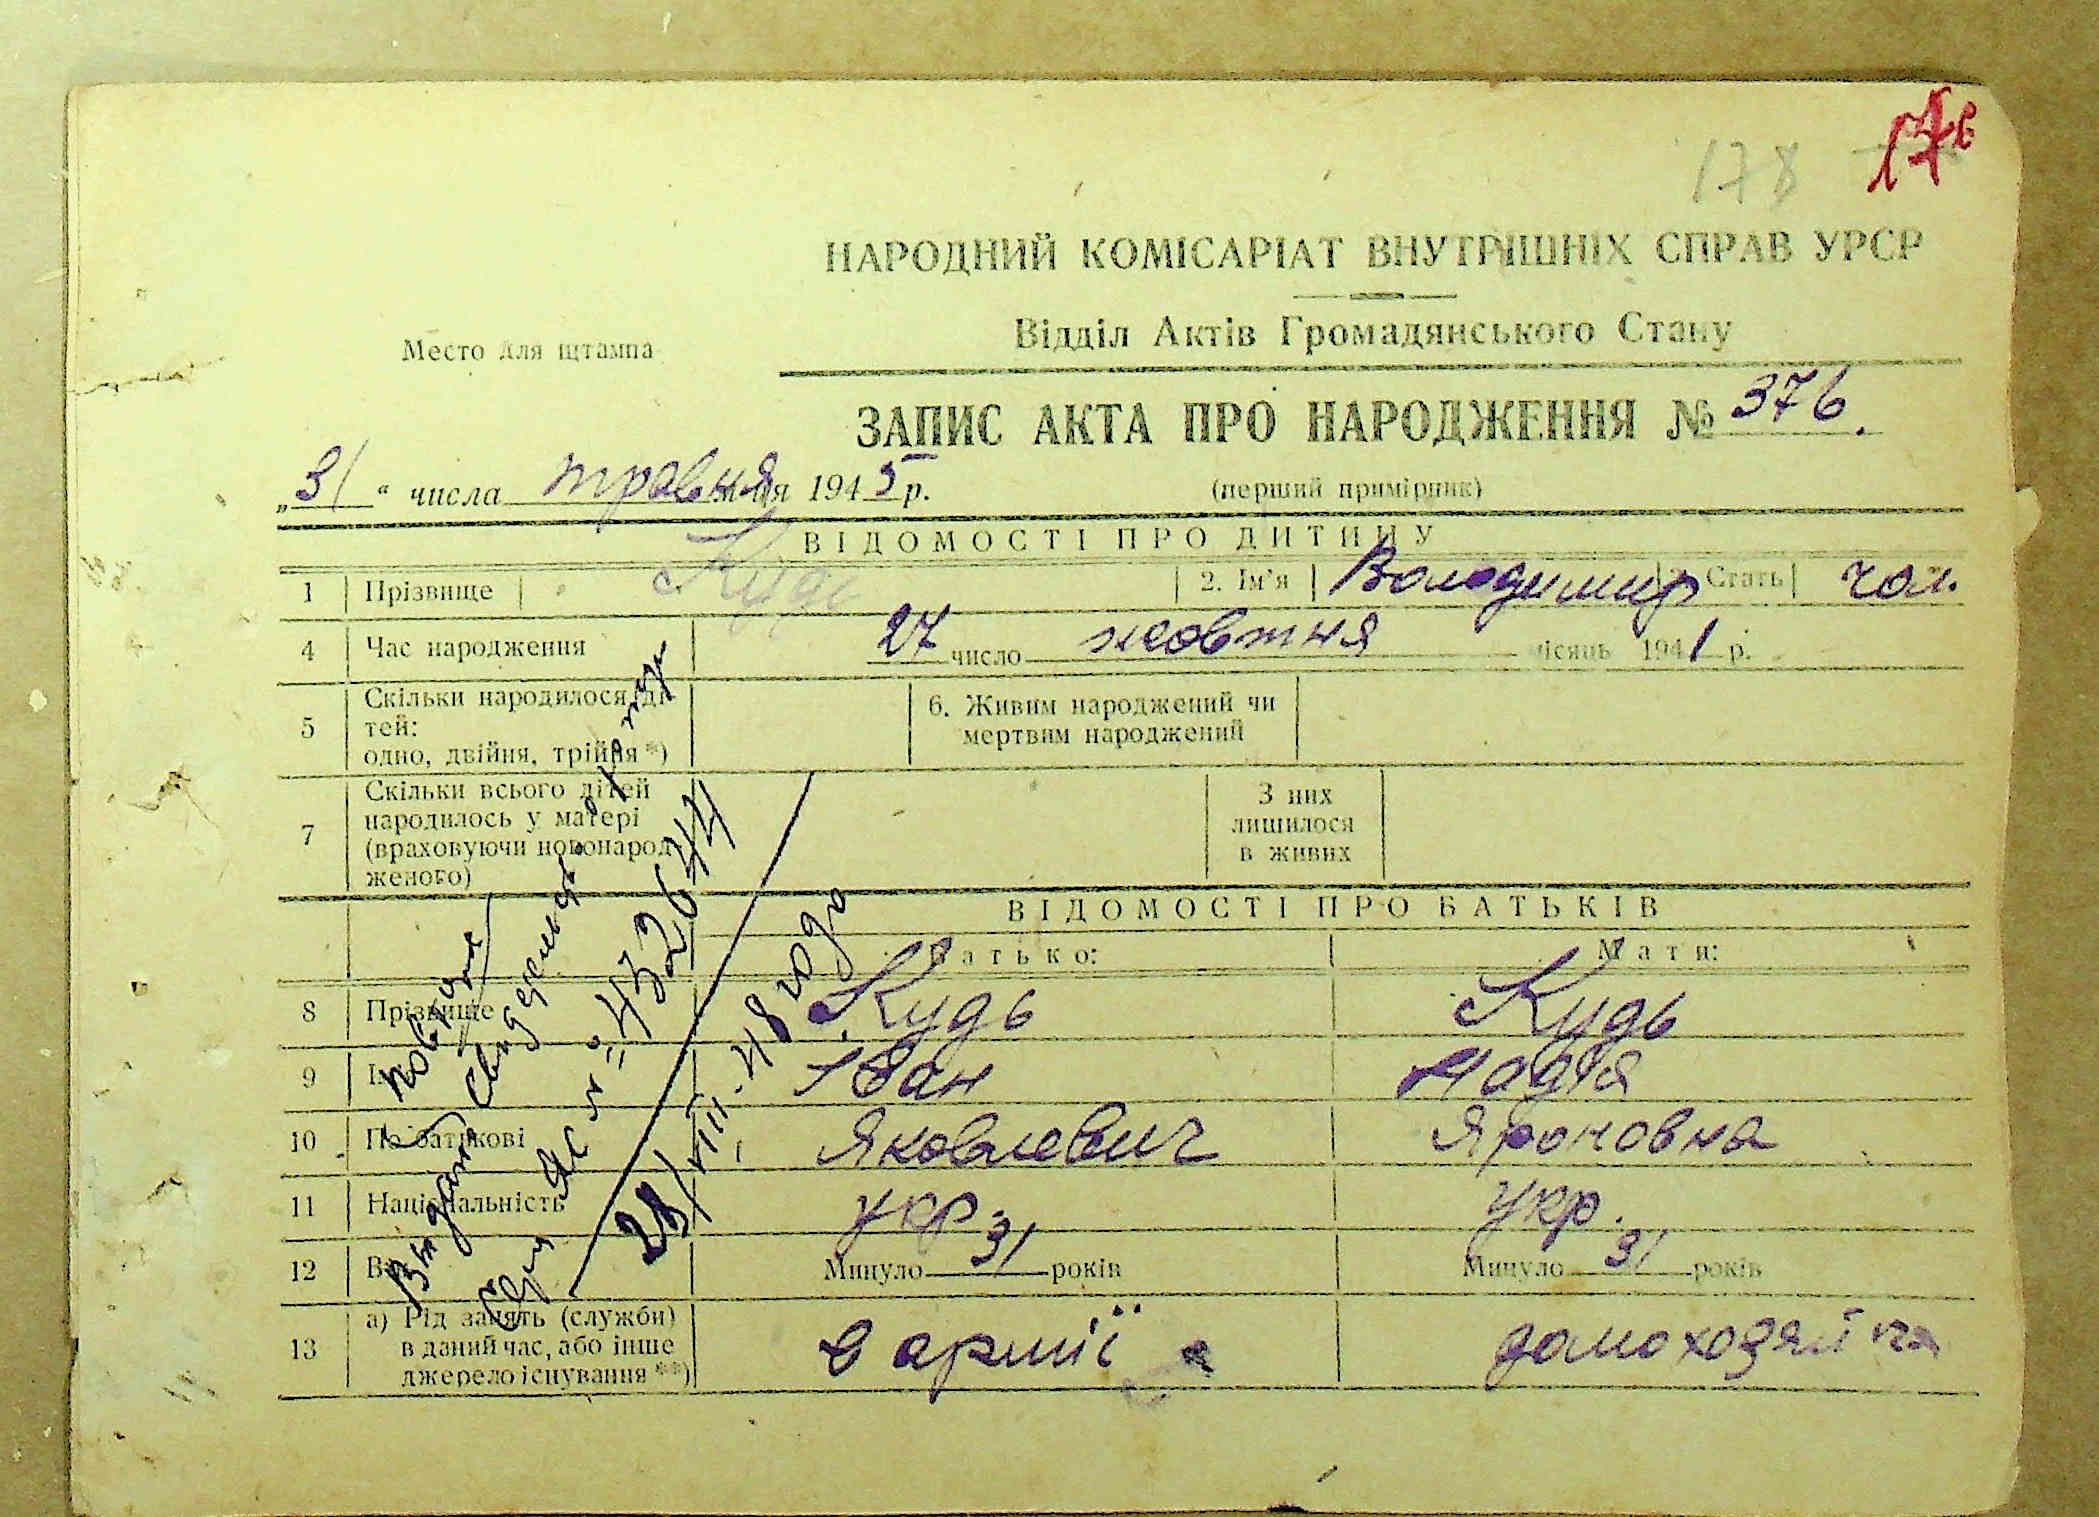 178
НАРОДНИЙ КОМІСАРІАТ ВНУТРІШНІХ СПРАВ УРСР
Відділ Актів Громадянського Стану
Место для штампа
ЗАПИС АКТА ПРО НАРОДЖЕННЯ № 376.
„31“ числа травня м-ця 1945 р. (перший примірник)
ВІДОМОСТІ ПРО ДИТИНУ
1 Прізвище Кудь 2. Ім'я Володимир 3. Стать чол.
4 Час народження 27 число жовтня місяць 1941 р.
5 Скільки народилося ді
тей:
одно, двійня, трійня *)
6. Живим народжений чи
мертвим народжений
7 Скільки всього дітей
народилось у матері
(враховуючи новонарод
женого)
З них
лишилося
в живих
ВІДОМОСТІ ПРО БАТЬКІВ
Батько: Мати:
8 Прізвище Кудь Кудь
9 Ім'я Іван Надія
10 По батькові Яковлевич
11 Національність укр. Укр.
12 Вік Минуло 31 років Минуло 31 років
13 а) Рід занять (служби)
в даний час, або інше
джерело існування **)
в армії домохозяйка
Выдано повторное
свидетельство о
серия № 432644
28/VIII-48 года